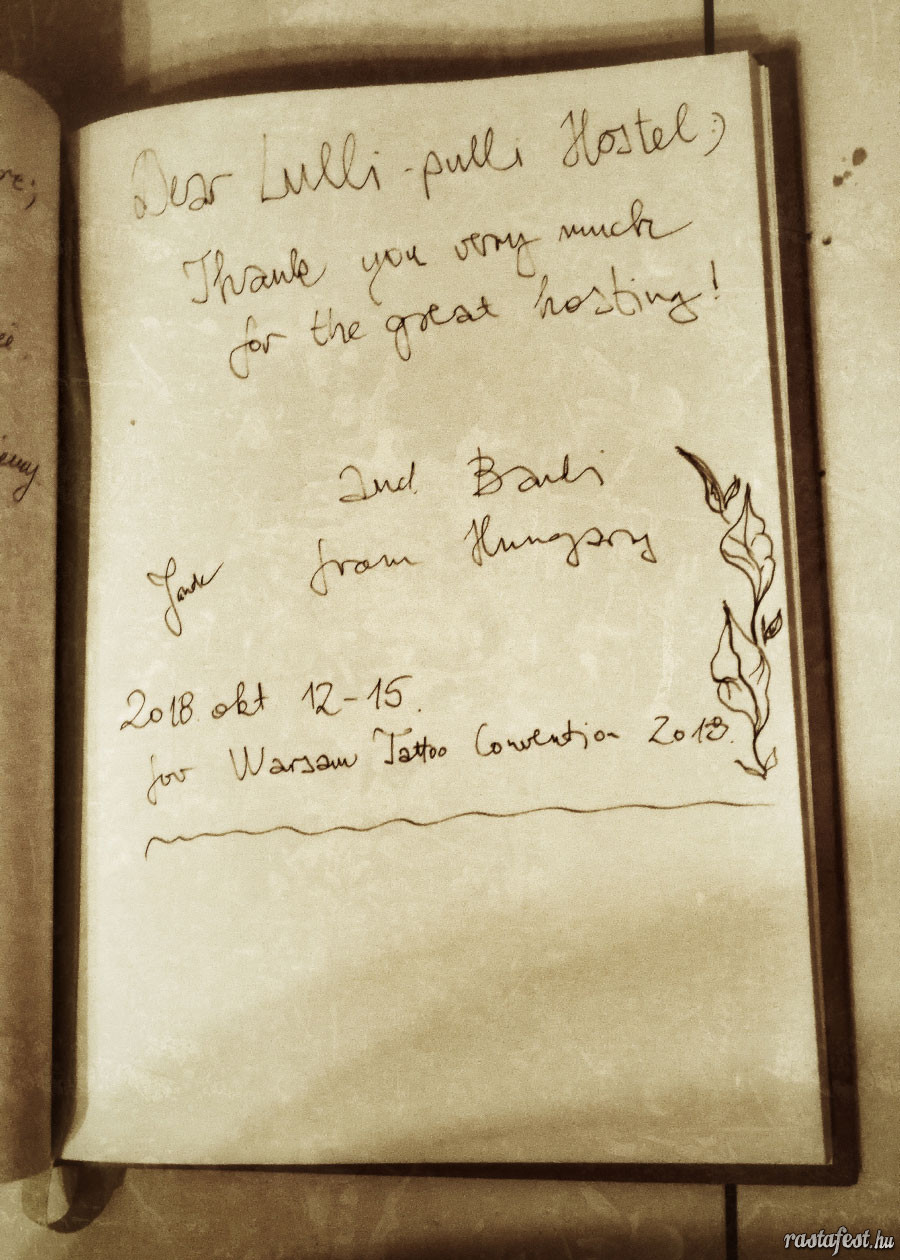 Dear Lulli-pulli Hostel;)
Thank you very much
for the great hosting!
and Barbi
from Hungary
2018. okt 12-15.
for Warsaw Tattoo Convention 2018.
rastafest.hu